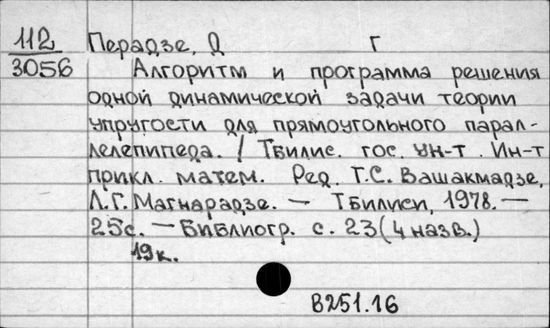 112 Перадзе, Д Г
3056 Алгоритм и программа решения
одной динамической задачи теории
упругости для прямоугольного парал-
лелепипеда. / Тбилис. гос. ун-т. Ин-т
прикл. матем. Ред. Т.С. Вашакмадзе,
Л.Г. Магнарадзе. — Тбилиси, 1978. —
25с. — Библиогр. с. 23 (4 назв.)
19к.
В251.16